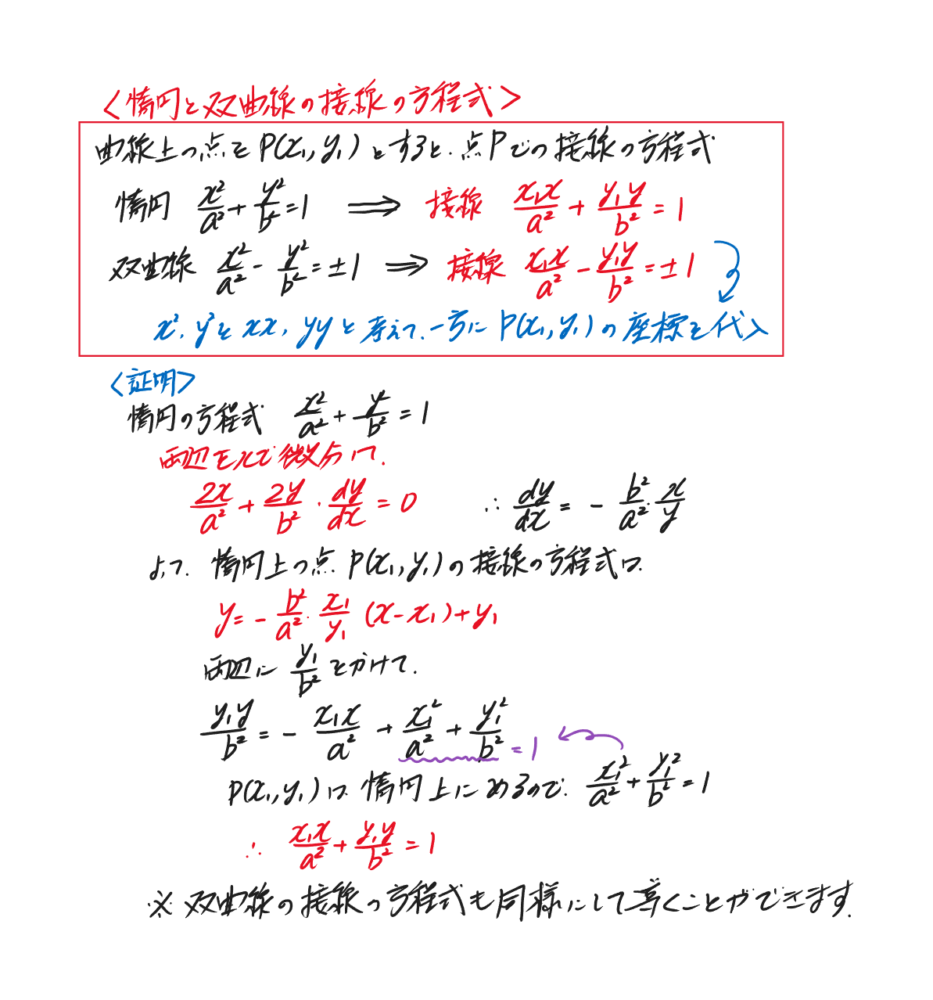 〈楕円と双曲線の接線の方程式〉
曲線上の点をP(x₁,y₁)とすると、点Pでの接線の方程式
楕円 x²/a² + y²/b² = 1 ⟹ 接線 x₁x/a² + y₁y/b² = 1
双曲線 x²/a² - y²/b² = ±1 ⟹ 接線 x₁x/a² - y₁y/b² = ±1
x², y²をxx, yyと考えて、一方にP(x₁,y₁)の座標を代入
〈証明〉
楕円の方程式 x²/a² + y²/b² = 1
両辺をxで微分して、
2x/a² + 2y/b² · dy/dx = 0 ∴ dy/dx = - b²/a² · x/y
よって、楕円上の点P(x₁,y₁)の接線の方程式は、
y = - b²/a² · x₁/y₁ (x-x₁)+y₁
両辺に y₁/b² をかけて、
y₁y/b² = - x₁x/a² + x₁²/a² + y₁²/b² = 1
P(x₁,y₁)は、楕円上にあるので、x₁²/a² + y₁²/b² = 1
∴ x₁x/a² + y₁y/b² = 1
※双曲線の接線の方程式も同様にして導くことができます.